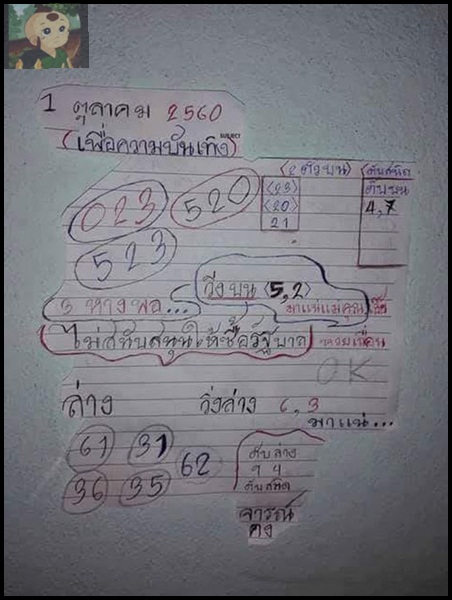 1 ตุลาคม 2560
(เพื่อความบันเทิง)
(2 ตัวบน)
ดับสนิท
ดับบน
4,7
023
520
(23)
(20)
21
523
วิ่งบน (5,2)
มาแน่แม่คุณ
5 หางพอ...
ไม่สนับสนุนให้ซื้อรัฐบาล
หวยเถื่อน
OK
ล่าง
วิ่งล่าง 6,3
มาแน่...
61
31
62
36
35
ดับล่าง
9 4
ดับสนิท
จารณ์
คง